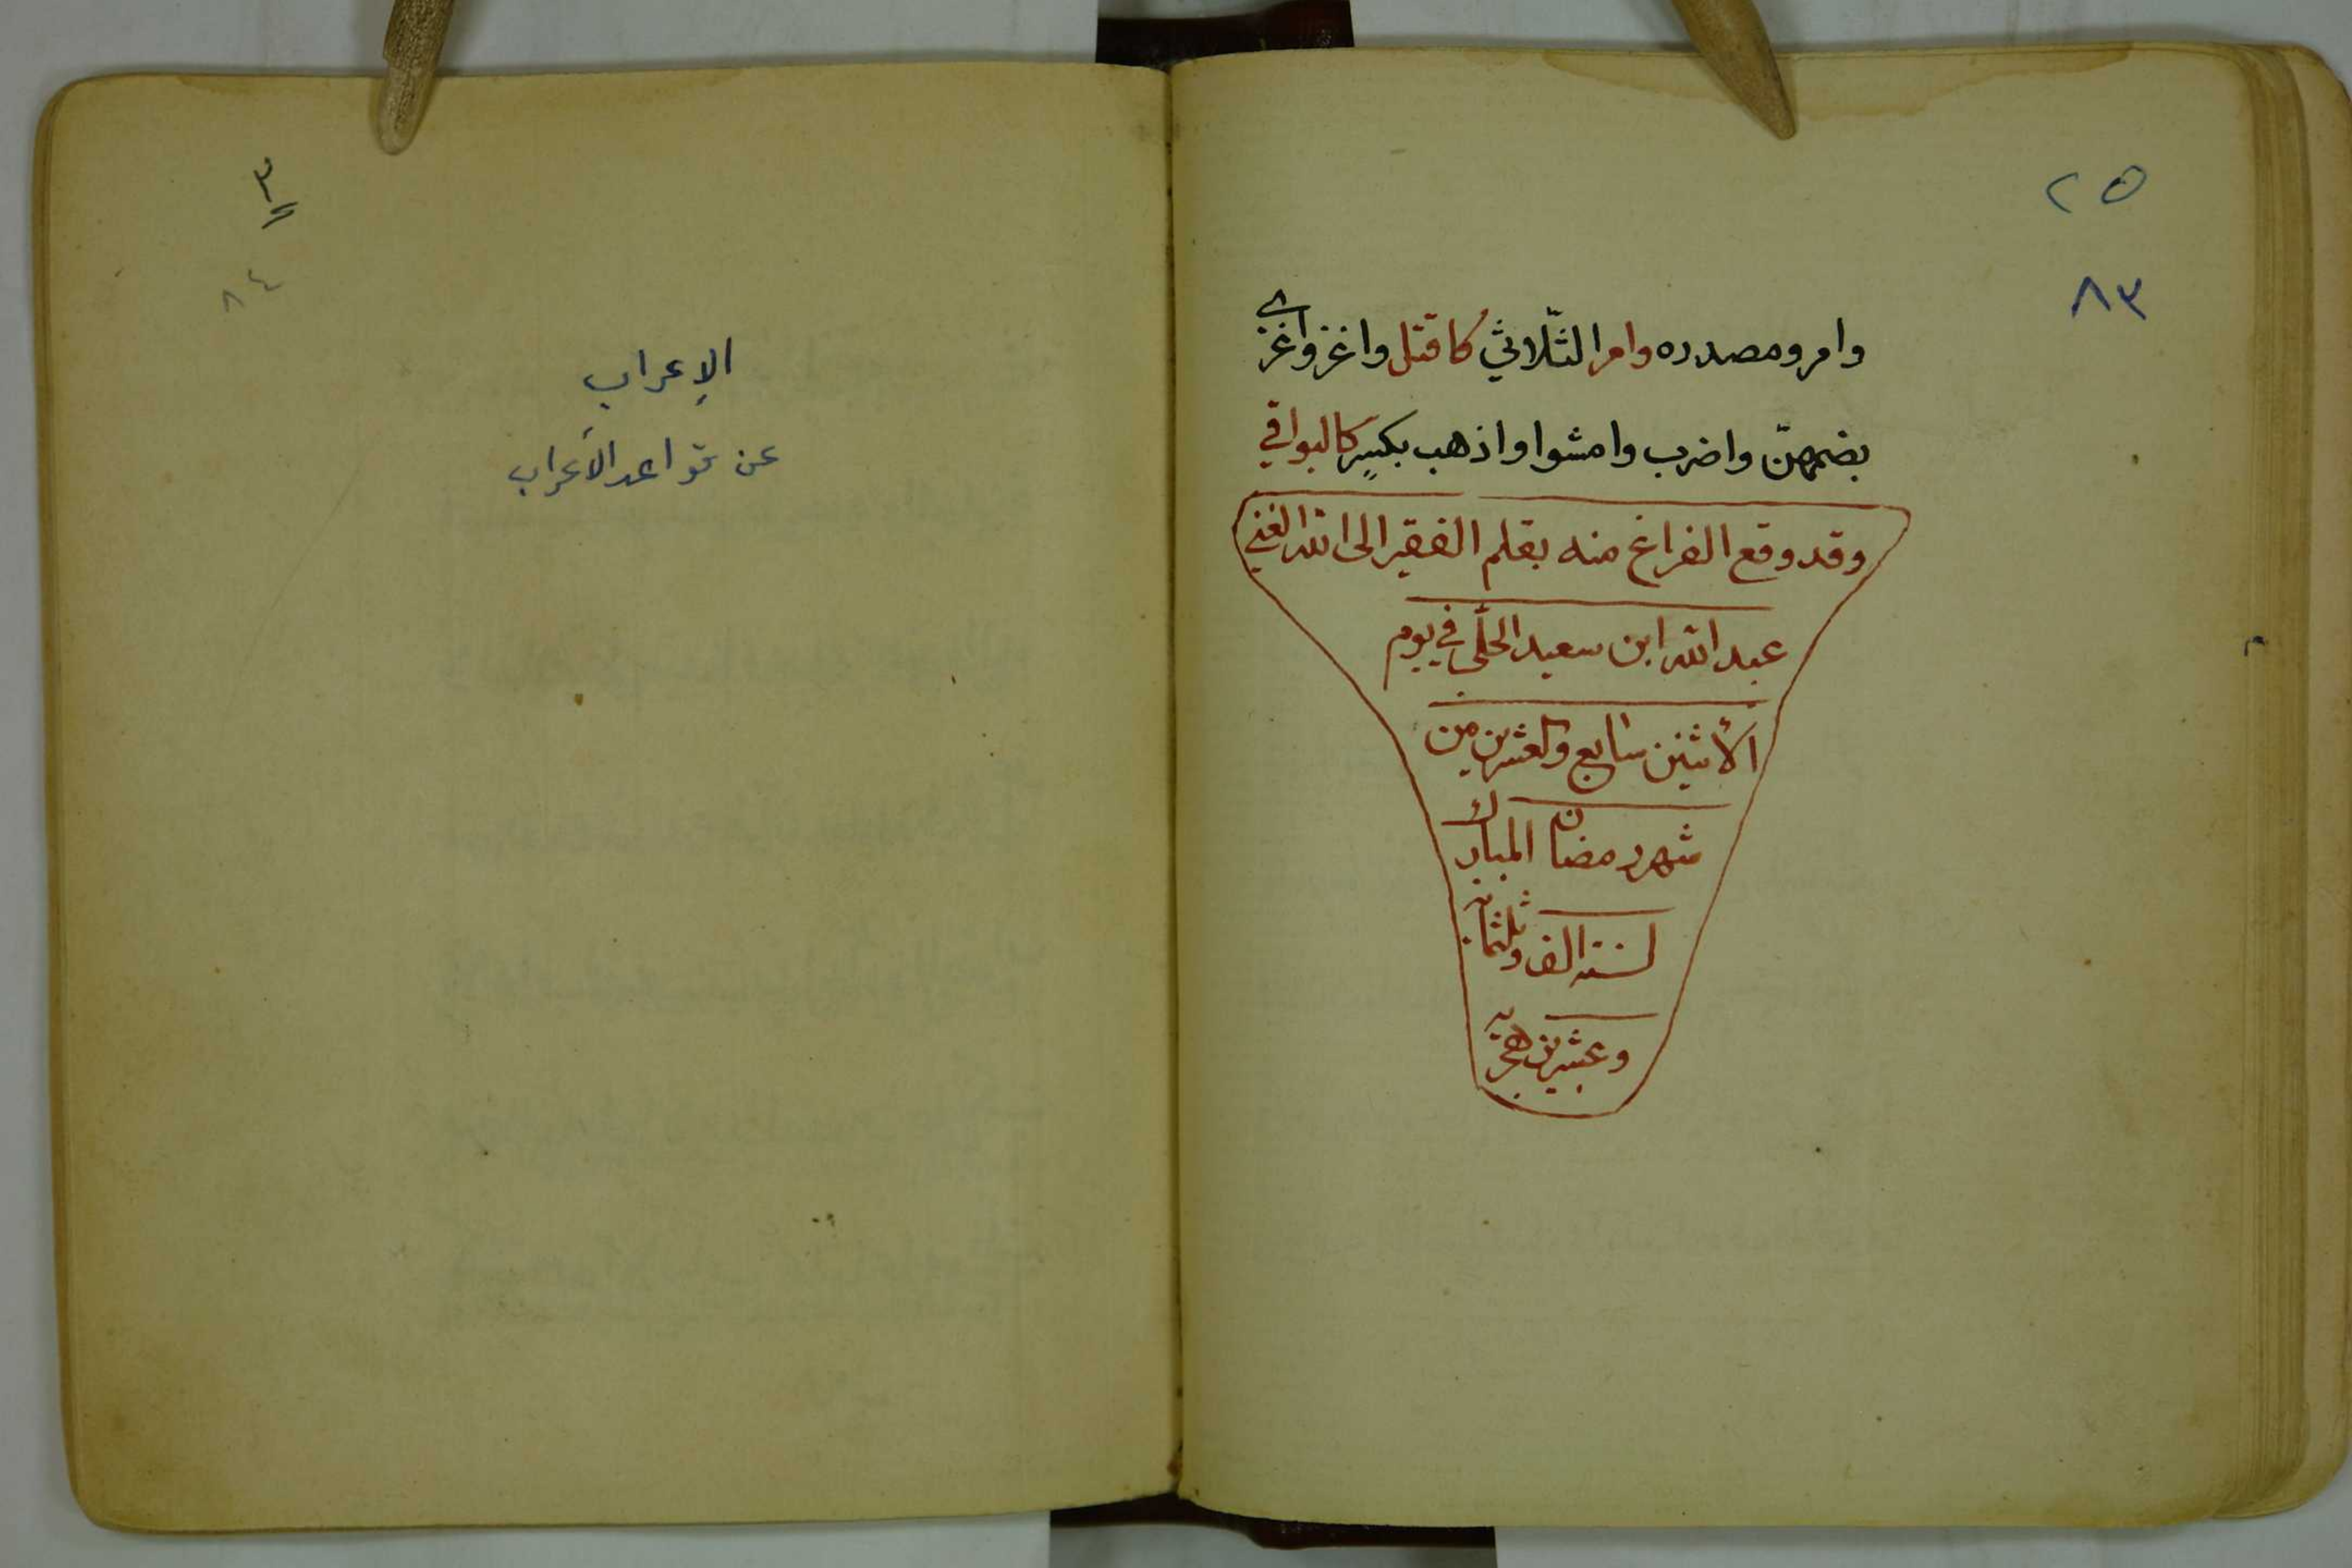 ٢٥
٨٣
وامر ومصدره وامر الثّلاثي كاقتل واغز واغزي
بضمهنّ واضرب وامشوا واذهب بكسرٍ كالبواقي
وقد وقع الفراغ منه بقلم الفقير الى الله الغني
عبد الله ابن سعيد الحلّي في يوم
الأثنين سابع والعشرين من
شهر رمضان المبارك
لسنة الف وثلثمائة
وعشرين هجرية
٣
٨٤
الإعراب
عن قواعد الأعراب